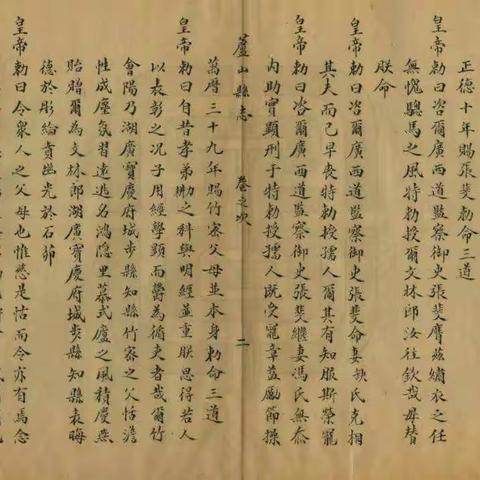 正德十年賜張斐勅命三道
皇帝勅曰咨爾廣西道監察御史張斐膺茲繡衣之任
無愧驄馬之風特勅授爾文林郎汝往欽哉毋替
朕命
皇帝勅曰咨爾廣西道監察御史張斐命妻缺氏克相
其夫而已早喪特勅授孺人爾其有知服斯榮寵
皇帝勅曰咨爾廣西道監察御史張斐繼妻馮氏無忝
內助實顯刑于特勅授孺人既受寵章益勵節操
蘆山縣志 卷之次 二
萬曆三十九年賜竹密父母並本身勅命三道
皇帝勅曰自昔孝弟勸之科與明經並重朕思得若人
以表彰之况子用經學顯而爵為循吏者哉爾竹
會陽乃湖廣寶慶府城步縣知縣竹密之父恬澹
性成塵氛習遠追名鴻隐里慕式廬之風積慶燕
貽贈爾為文林郎湖廣寶慶府城步縣知縣表晦
德於彤綸賁幽光於石節
皇帝勅曰令衆人之父母也惟慈是怙而令亦有焉念